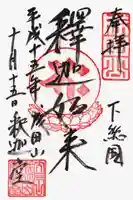 奉拝
下総国
釋迦如来
平成十五年 成田山
十月十五日 釈迦堂